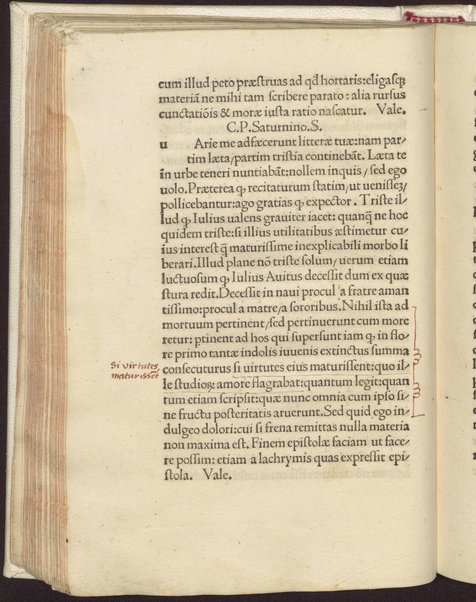 cum illud peto præstruas ad qđ hortaris:eligasqȝ
materiā ne mihi tam scribere parato : alia rursus
cunctatiōis & moræ iusta ratio nascatur. Vale.
C.P.Saturnino.S.
u Arie me adfæcerunt litteræ tuæ:nam par-
tim læta/partim tristia continebāt. Læta te
in urbe teneri nuntiabāt:nollem inquis/sed ego
uolo. Præterea ꝙ recitaturum statim/ut uenissez/
pollicebantur:ago gratias ꝙ expector. Triste il-
lud ꝙ Iulius ualens grauiter iacet: quanqȝ ne hoc
quidem triste:si illius utilitatibus æstimetur cu-
ius interest ꝙ maturissime inexplicabili morbo li
berari. Illud plane nō triste solum/uerum etiam
luctuosum ꝙ Iulius Auitus decessit dum ex quæ
stura redit. Decessit in naui procul a fratre aman
tissimo:procul a matre/a sororibus. Nihil ista ad
mortuum pertinent/sed pertinuerunt cum more
retur: ꝑtinent ad hos qui supersunt iam ꝙ in flo
re primo tantæ indolis iuuenis extinctus summa
consecuturus si uirtutes eius maturissent:quo il-
le studioꝝ amore flagrabat:quantum legit:quan
tum etiam scripsit:quæ nunc omnia cum ipso si-
ne fructu posteritatis aruerunt. Sed quid ego in-
dulgeo dolori:cui si frena remittas nulla materia
non maxima est. Finem epistolæ faciam ut face-
re possim: etiam a lachrymis quas expressit epi-
stola. Vale.
Si virtutes
maturissēt